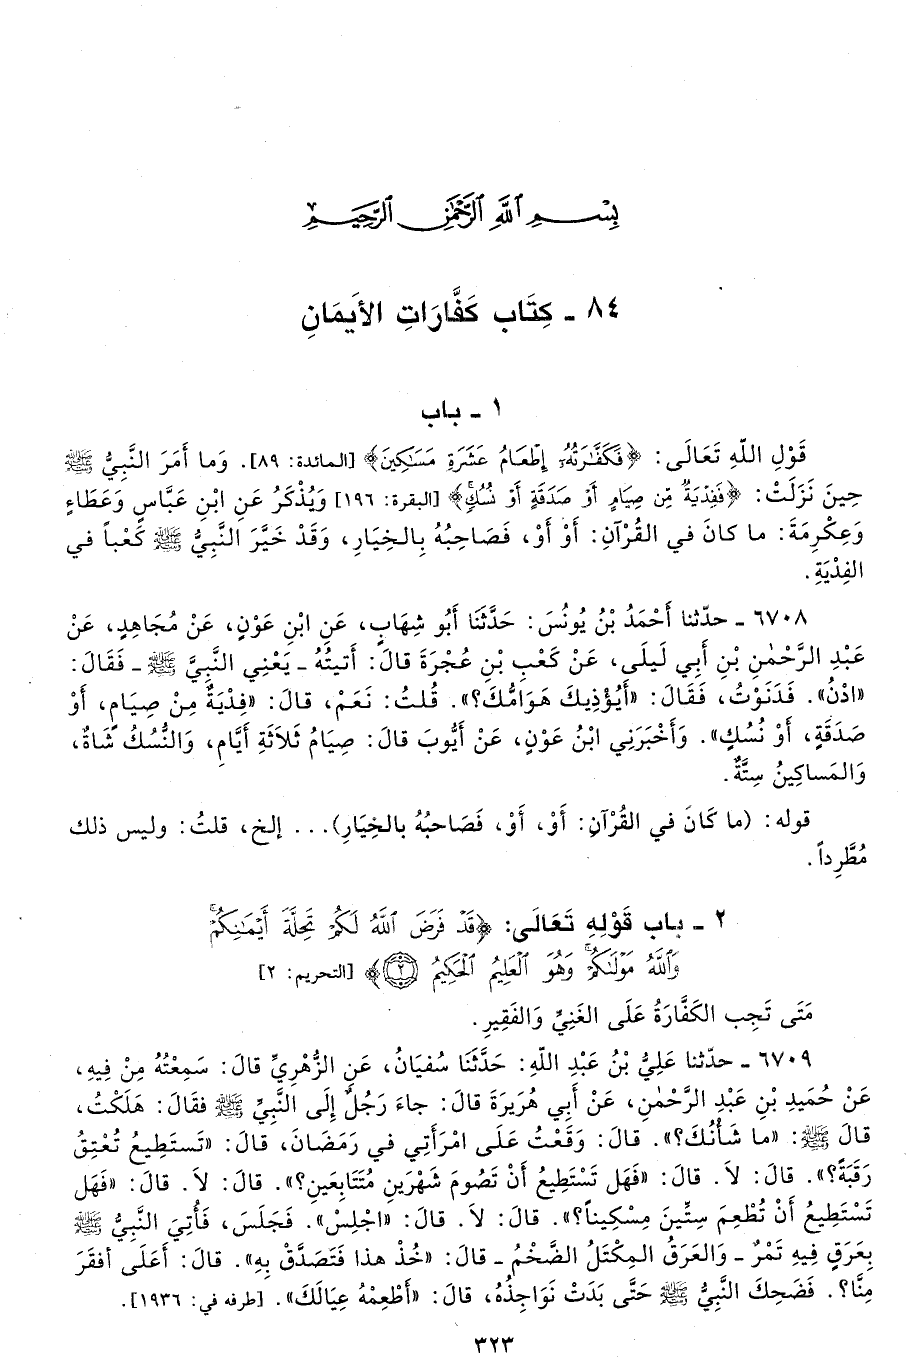 بِسْمِ ٱللَّهِ ٱلرَّحْمَٰنِ ٱلرَّحِيمِ
٨٤ ـ كِتَاب كَفَّارَاتِ الأَيمَانِ
١ ـ باب
قَوْلِ اللّهِ تَعَالَى: ﴿فَكَفَّٰرَتُهُۥٓ إِطْعَامُ عَشَرَةِ مَسَٰكِينَ﴾ [المائدة: ٨٩]. وَما أَمَرَ النَّبِيُّ ﷺ
حِينَ نَزَلَتْ: ﴿فَفِدْيَةٌ مِّن صِيَامٍ أَوْ صَدَقَةٍ أَوْ نُسُكٍۚ﴾ [البقرة: ١٩٦] وَيُذْكَرُ عَنِ ابْنِ عَبَّاسٍ وَعَطَاءٍ
وَعِكْرِمَةَ: ما كانَ في القُرْآنِ: أَوْ أَوْ، فَصَاحِبُهُ بِالخِيَارِ، وَقَدْ خَيَّرَ النَّبِيُّ ﷺ كَعْباً في
الفِدْيَةِ.
٦٧٠٨ ـ حدّثنا أَحْمَدُ بْنُ يُونُسَ: حَدَّثَنَا أَبُو شِهَابٍ، عَنِ ابْنِ عَوْنٍ، عَنْ مُجَاهِدٍ، عَنْ
عَبْدِ الرَّحْمٰنِ بْنِ أَبِي لَيلَى، عَنْ كَعْبِ بْنِ عُجْرَةَ قالَ: أَتَيتُهُ ـ يَعْنِي النَّبِيَّ ﷺ ـ فَقَالَ:
«ادْنُ». فَدَنَوْتُ، فَقَالَ: «أَيُؤْذِيكَ هَوَامُّكَ؟». قُلتُ: نَعَمْ، قالَ: «فِدْيَةٌ مِنْ صِيَامٍ، أَوْ
صَدَقَةٍ، أَوْ نُسُكٍ». وَأَخْبَرَنِي ابْنُ عَوْنٍ، عَنْ أَيُّوبَ قالَ: صِيَامُ ثَلاَثَةِ أَيَّامٍ، وَالنُّسُكُ شَاةٌ،
وَالمَساكِينُ سِتَّةٌ.
قوله: (ما كَانَ في القُرْآنِ: أَوْ، أَوْ، فَصَاحبُهُ بالخِيَارِ)... إلخ، قلتُ: وليس ذلك
مُطَّرِداً.
٢ ـ باب قَوْلِهِ تَعَالَى: ﴿قَدْ فَرَضَ ٱللَّهُ لَكُمْ تَحِلَّةَ أَيْمَٰنِكُمْۚ
وَٱللَّهُ مَوْلَىٰكُمْۖ وَهُوَ ٱلْعَلِيمُ ٱلْحَكِيمُ ٢﴾ [التحريم: ٢]
مَتَى تَجِب الكَفَّارَةُ عَلَى الغَنِيِّ وَالفَقِيرِ.
٦٧٠٩ ـ حدّثنا عَلِيُّ بْنُ عَبْدِ اللّهِ: حَدَّثَنَا سُفيَانُ، عَنِ الزُّهْرِيِّ قالَ: سَمِعْتُهُ مِنْ فِيهِ،
عَنْ حُمَيدِ بْنِ عَبْدِ الرَّحْمٰنِ، عَنْ أَبِي هُرَيرَةَ قالَ: جاءَ رَجُلٌ إِلَى النَّبِيِّ ﷺ فقالَ: هَلَكْتُ،
قالَ ﷺ: «ما شَأْنُكَ؟». قالَ: وَقَعْتُ عَلَى امْرَأَتِي في رَمَضَانَ، قالَ: «تَستَطِيعُ تُعْتِقُ
رَقَبَةً؟». قالَ: لاَ. قالَ: «فَهَل تَسْتَطِيعُ أَنْ تَصُومَ شَهْرَينِ مُتَتَابِعَينِ؟». قالَ: لاَ. قالَ: «فَهَل
تَسْتَطِيعُ أَنْ تُطْعِمَ سِتِّينَ مِسْكِيناً؟». قالَ: لاَ. قالَ: «اجْلِسْ». فَجَلَسَ، فَأُتِيَ النَّبِيُّ ﷺ
بِعَرَقٍ فِيهِ تَمْرٌ ـ وَالعَرَقُ المِكْتَلُ الضَّخْمُ ـ قالَ: «خُذْ هذا فَتَصَدَّقْ بِهِ». قالَ: أَعَلَى أفقَرَ
مِنَّا؟. فَضَحِكَ النَّبِيُّ ﷺ حَتَّى بَدَتْ نَوَاجِذُهُ، قالَ: «أَطْعِمْهُ عِيَالَكَ». [طرفه في: ١٩٣٦].
٣٢٣